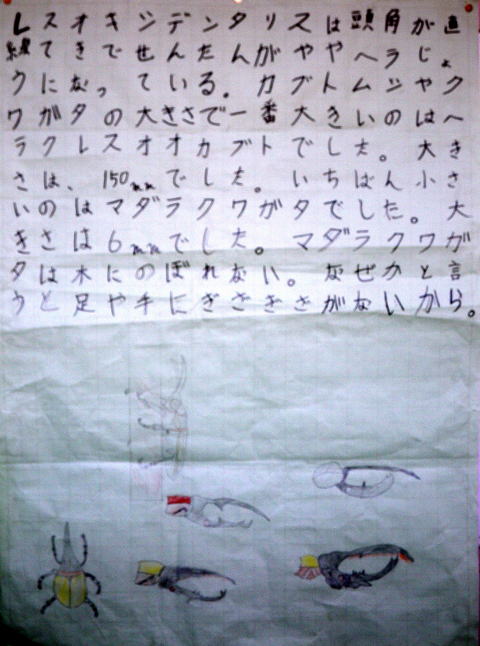 レスオキシデンタリスは頭角が直
線てきでせんたんがややヘラじょ
うになっている。カブトムシやク
ワガタの大きさで一番大きいのはヘ
ラクレスオオカブトでした。大き
さは、150mmでした。いちばん小さ
いのはマダラクワガタでした。大
きさは6mmでした。マダラクワガ
タは木にのぼれない。なぜかと言
うと足や手にぎざぎさがないから。